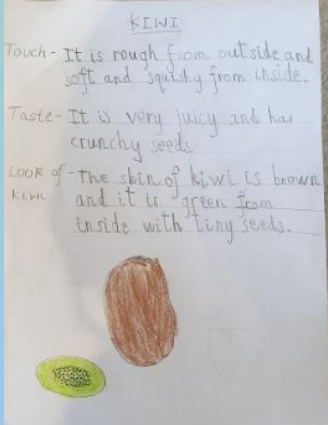 KIWI
Touch - It is rough from outside and
soft and squishy from inside.
Taste - It is very juicy and has
crunchy seeds.
LOOK of - The skin of kiwi is brown
kiwi and it is green from
inside with tiny seeds.